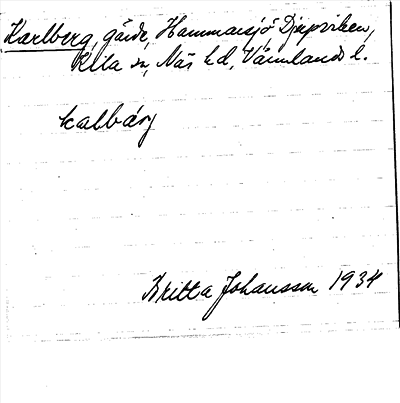 Karlberg, gärde, Hammarsjö Djupviken,
Kila sn, Näs hd, Värmlands l.
kalbärj
Britta Johansson 1934